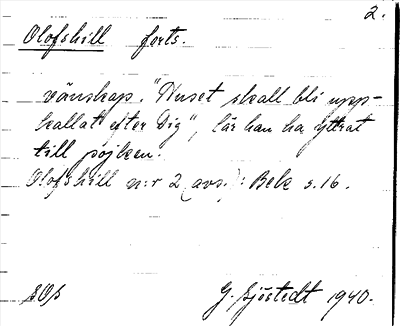 2.
Olofshill forts.
vänskap. "Huset skall bli upp-
kallat efter Dig", lär han ha yttrat
till pojken.
Olofshill n:r 2 (avs.): Bek s. 16.
G. Sjöstedt 1940.